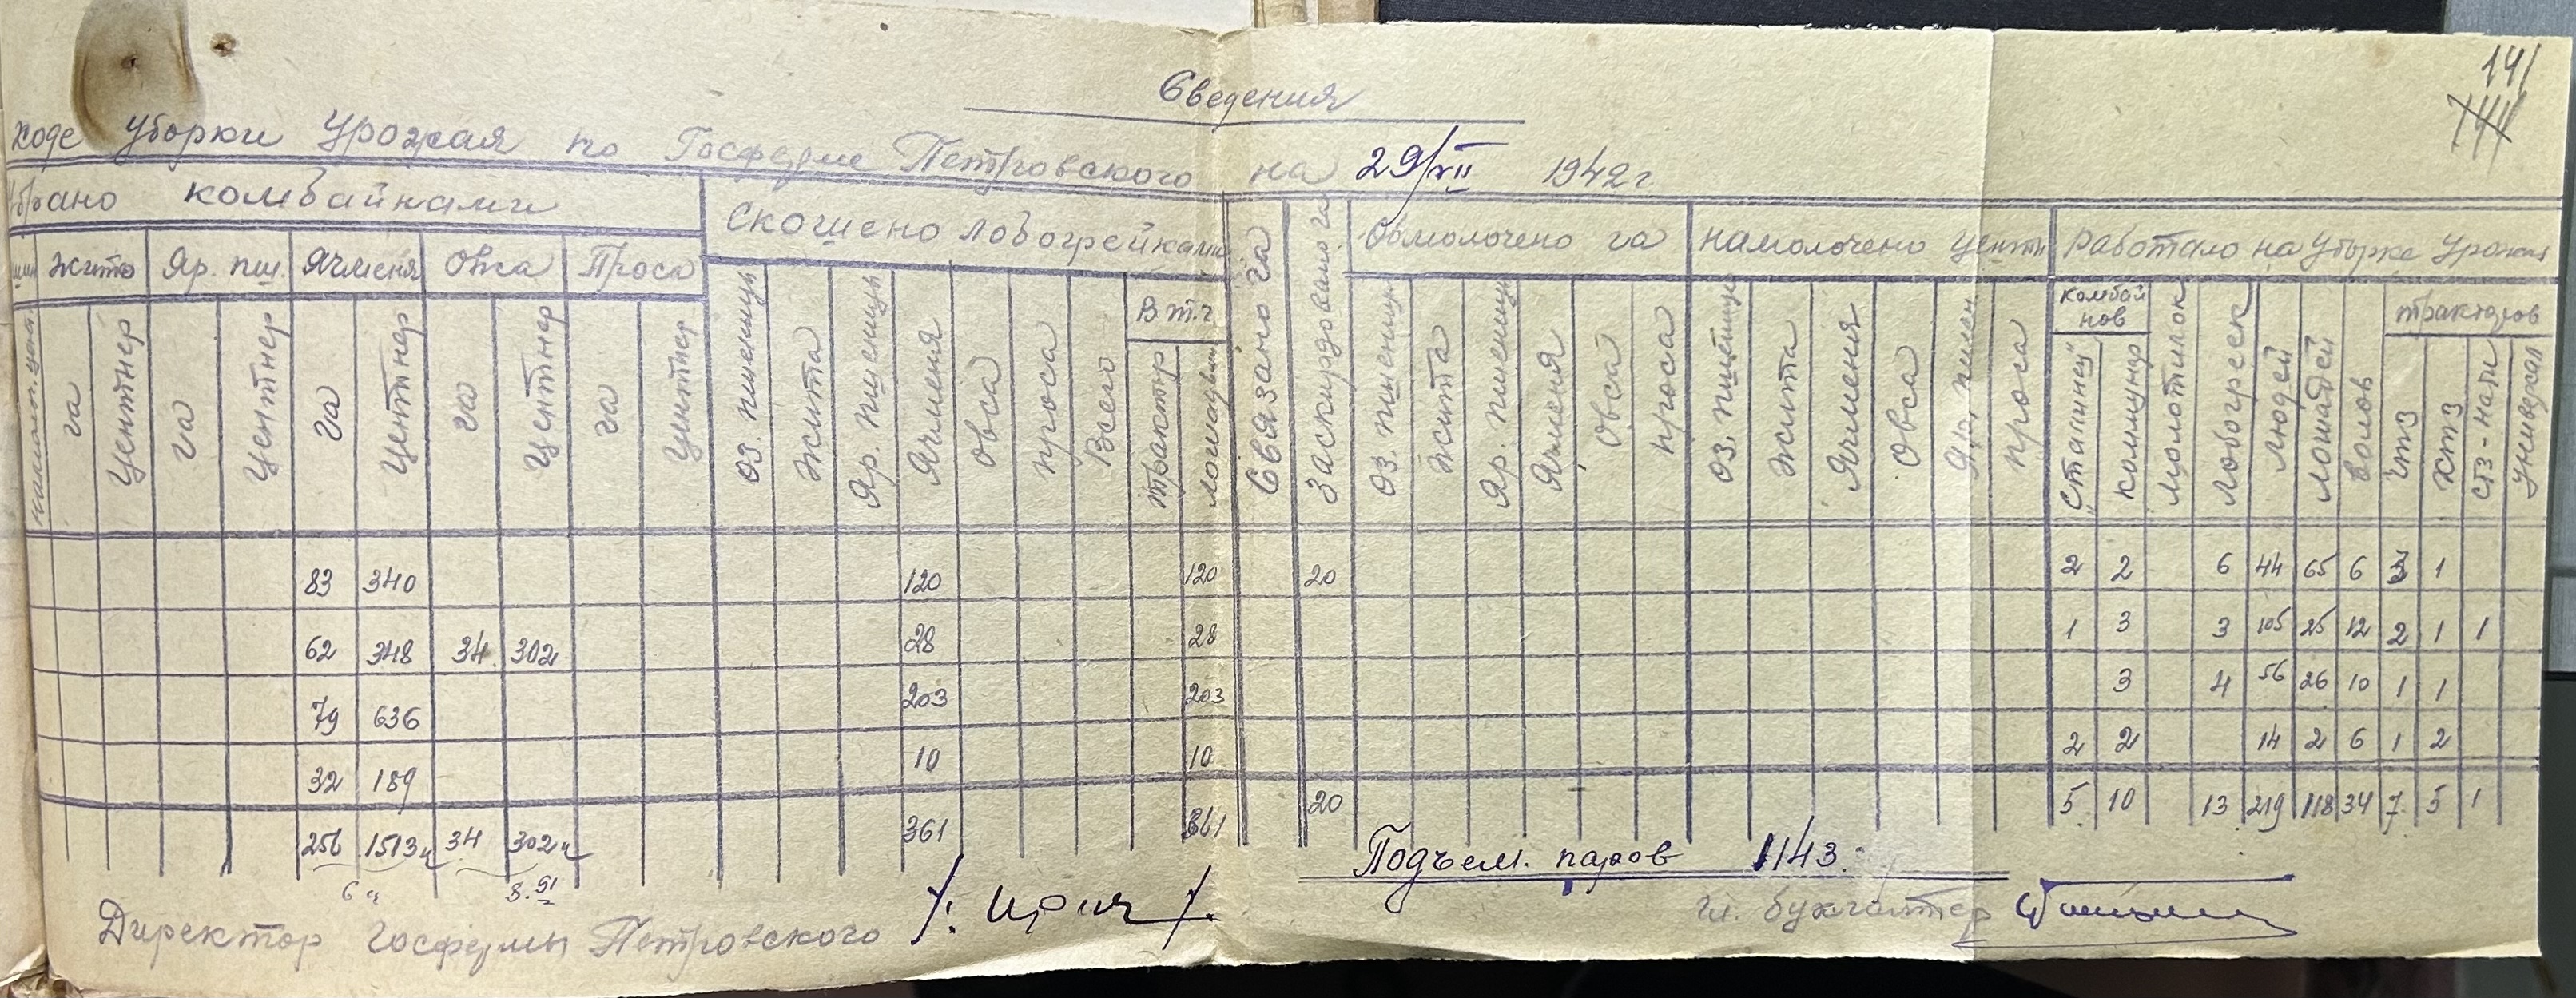 141
144
Сведения
ходе уборки урожая по Госферме Петровского на 29/VII 1942 г
Убрано комбайнами Скошено лобогрейками Связано га Заскирдовано га Обмолочено га намолочено центн работало на уборке урожая
жита Яр. пш. Ячменя Овса Проса
га Центнер га Центнер га Центнер га Центнер га Центнер
оз. пшеницы жита Яр. пшеницы Ячменя Овса проса Всего В т.ч трактор лошадьми
оз. пшеницы жита Яр. пшеницы Ячменя Овса проса
оз. пшеницы жита Ячменя Овса Яр. пшен проса
комбайнов "Сталинец" коммунар молотилок лобогреек людей лошадей волов тракторов ЧТЗ ХТЗ СТЗ-нати Универсал
83 340 120 120 20 2 2 6 44 65 6 3 1
62 348 34 302 28 28 1 3 3 105 25 12 2 1 1
79 636 203 203 3 4 56 26 10 1 1
32 189 10 10 2 2 14 2 6 1 2
256 1513ц 34 302ц 361 361 20 5 10 13 219 118 34 7 5 1
Подъем. паров 1143.
Директор Госфермы Петровского
Гл. бухгалтер